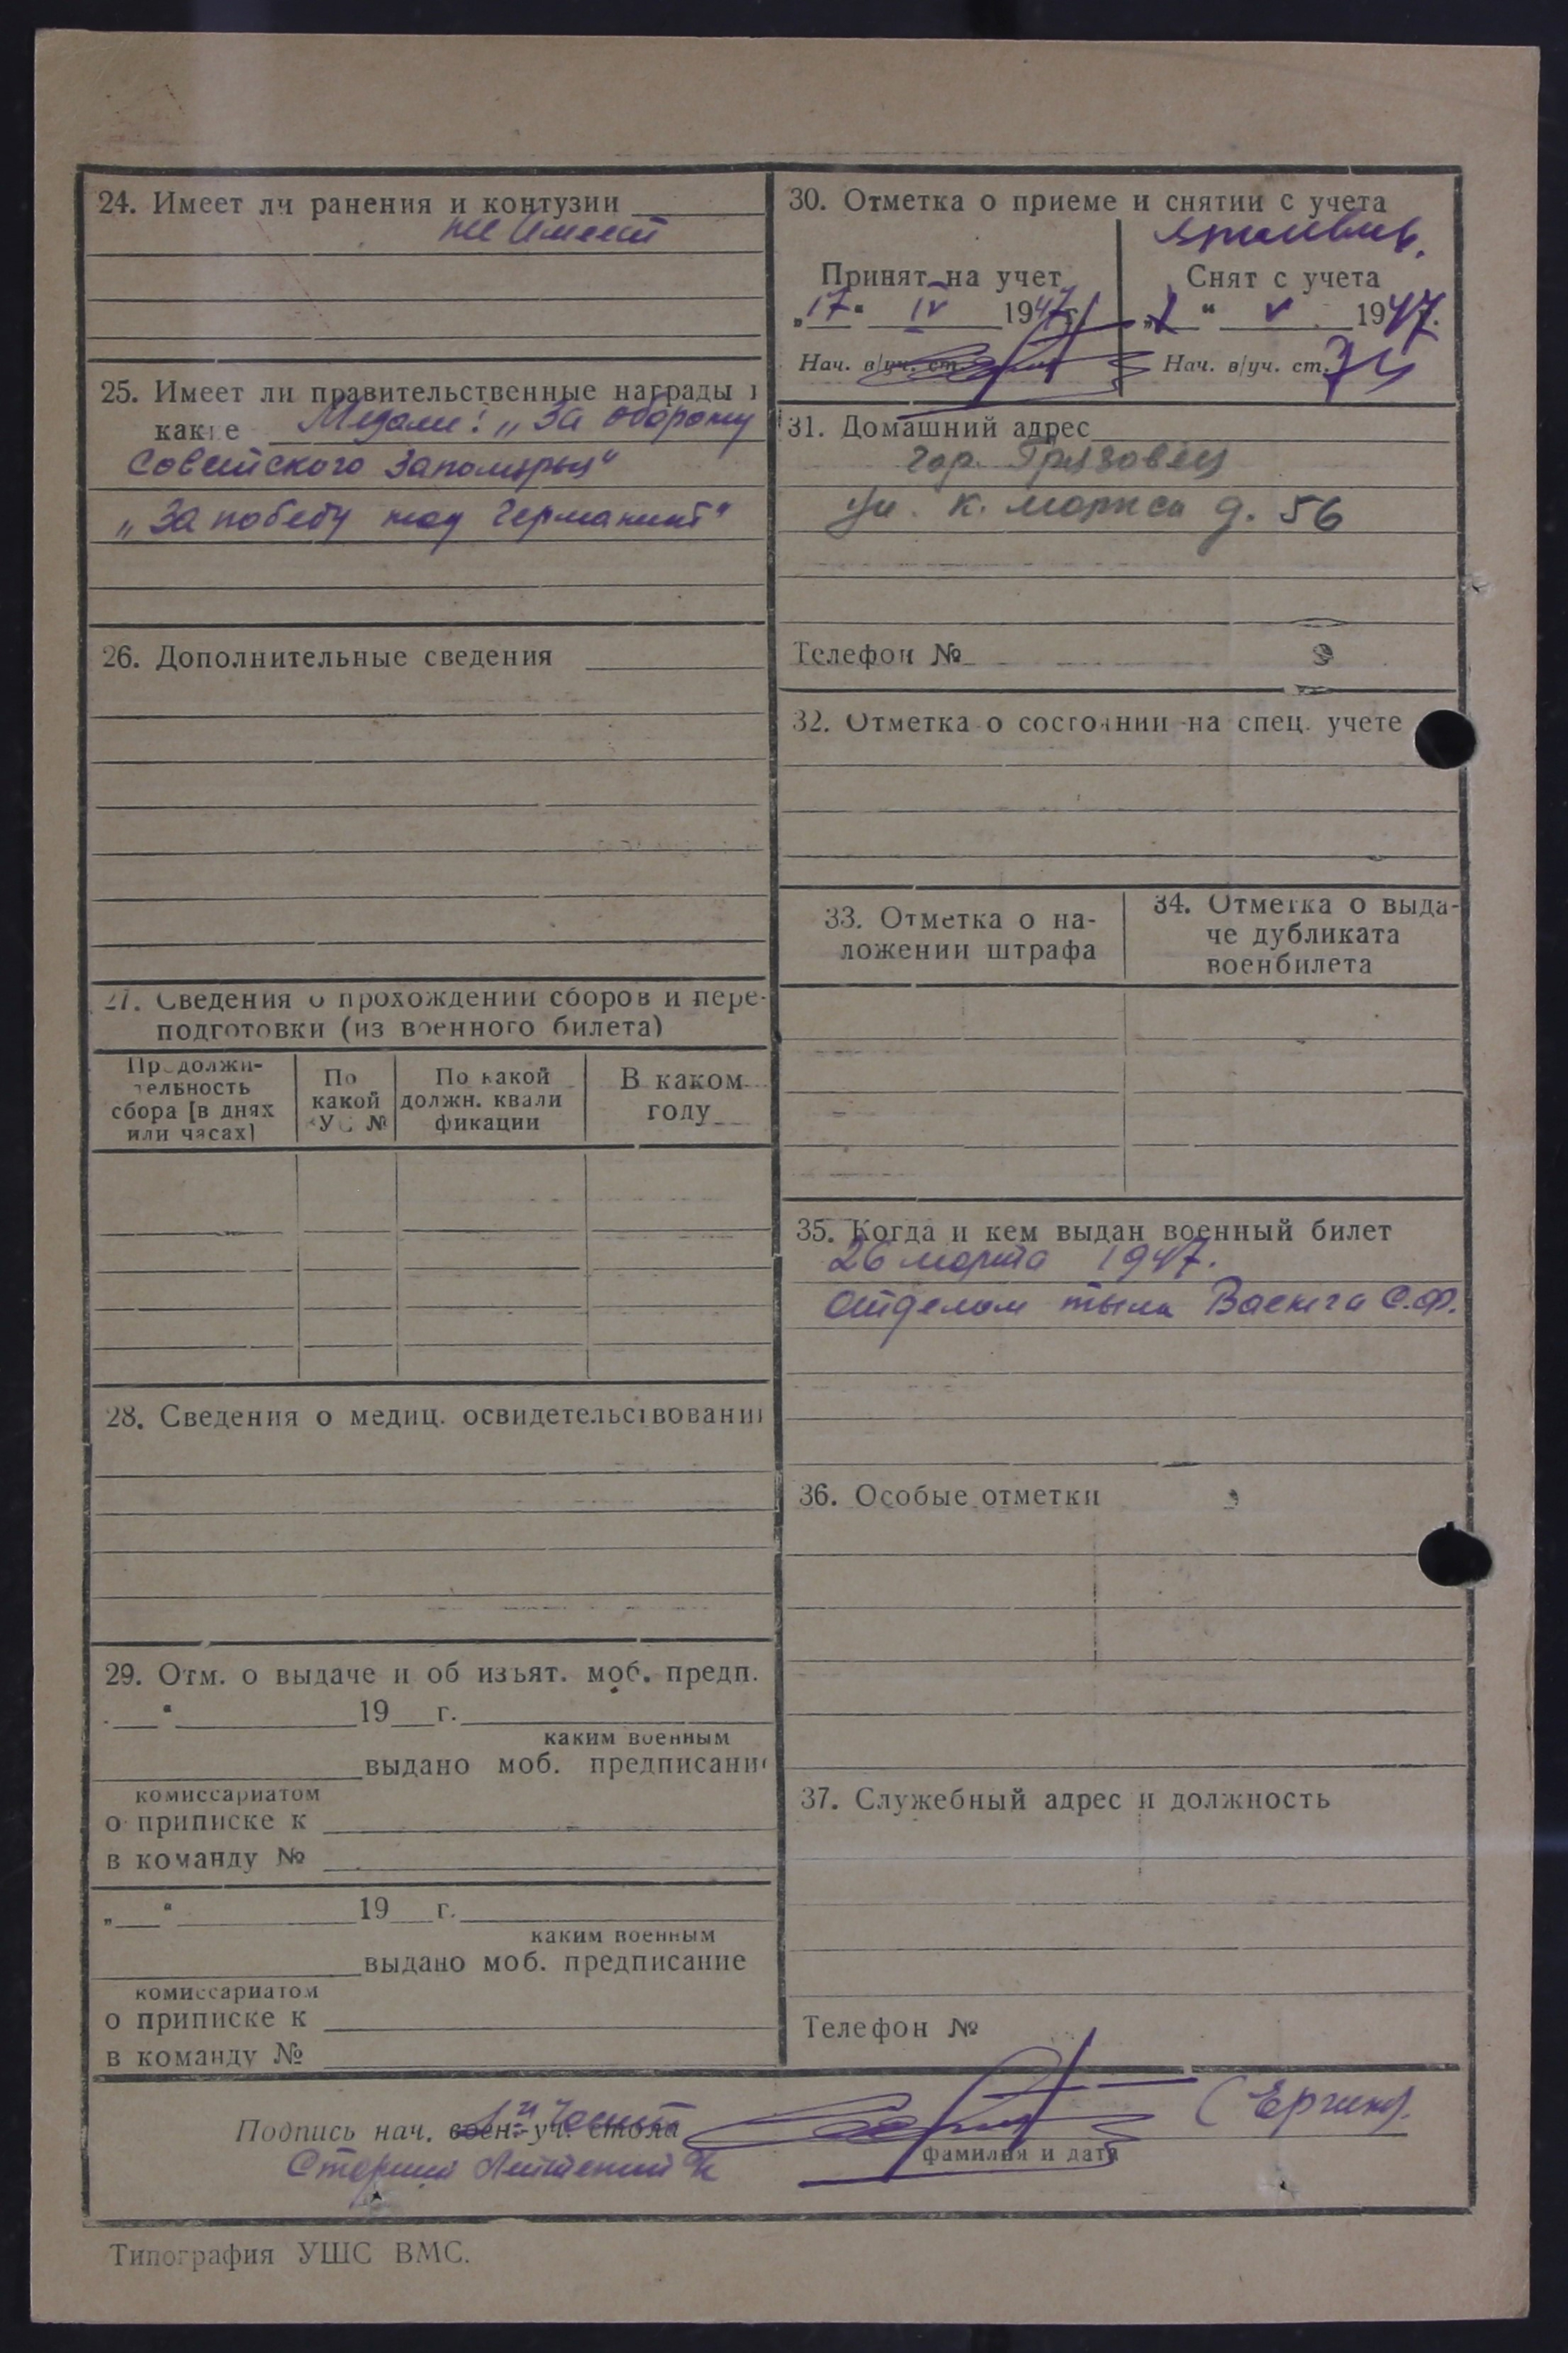 24. Имеет ли ранения и контузии
не имеет
25. Имеет ли правительственные награды и
какие Медали: „За оборону
Советского Заполярья“
„За победу над Германией“
26. Дополнительные сведения
27. Сведения о прохождении сборов и пере-
подготовки (из военного билета)
Продолжи-
тельность
сбора [в днях
или часах]
По
какой
ВУС №
По какой
должн. квали
фикации
В каком
году
28. Сведения о медиц. освидетельствовании
29. Отм. о выдаче и об изъят. моб. предп.
„ “ 19 г.
каким военным
выдано моб. предписание
комиссариатом
о приписке к
в команду №
„ “ 19 г.
каким военным
выдано моб. предписание
комиссариатом
о приписке к
в команду №
30. Отметка о приеме и снятии с учета
Принят на учет
„17“ IV 1947 г.
Нач. в/уч. ст.
Снят с учета
“ V 1947.
Нач. в/уч. ст.
31. Домашний адрес
гор. Грязовец
ул. К. Маркса д. 56
Телефон №
32. Отметка о состоянии на спец. учете
33. Отметка о на-
ложении штрафа
34. Отметка о выда-
че дубликата
военбилета
35. Когда и кем выдан военный билет
26 марта 1947.
Отделом тыла Ваенга С.Ф.
36. Особые отметки
37. Служебный адрес и должность
Телефон №
Подпись нач. воен.-уч. стола
фамилия и дата
Старший Лейтенант
Типография УШС ВМС.